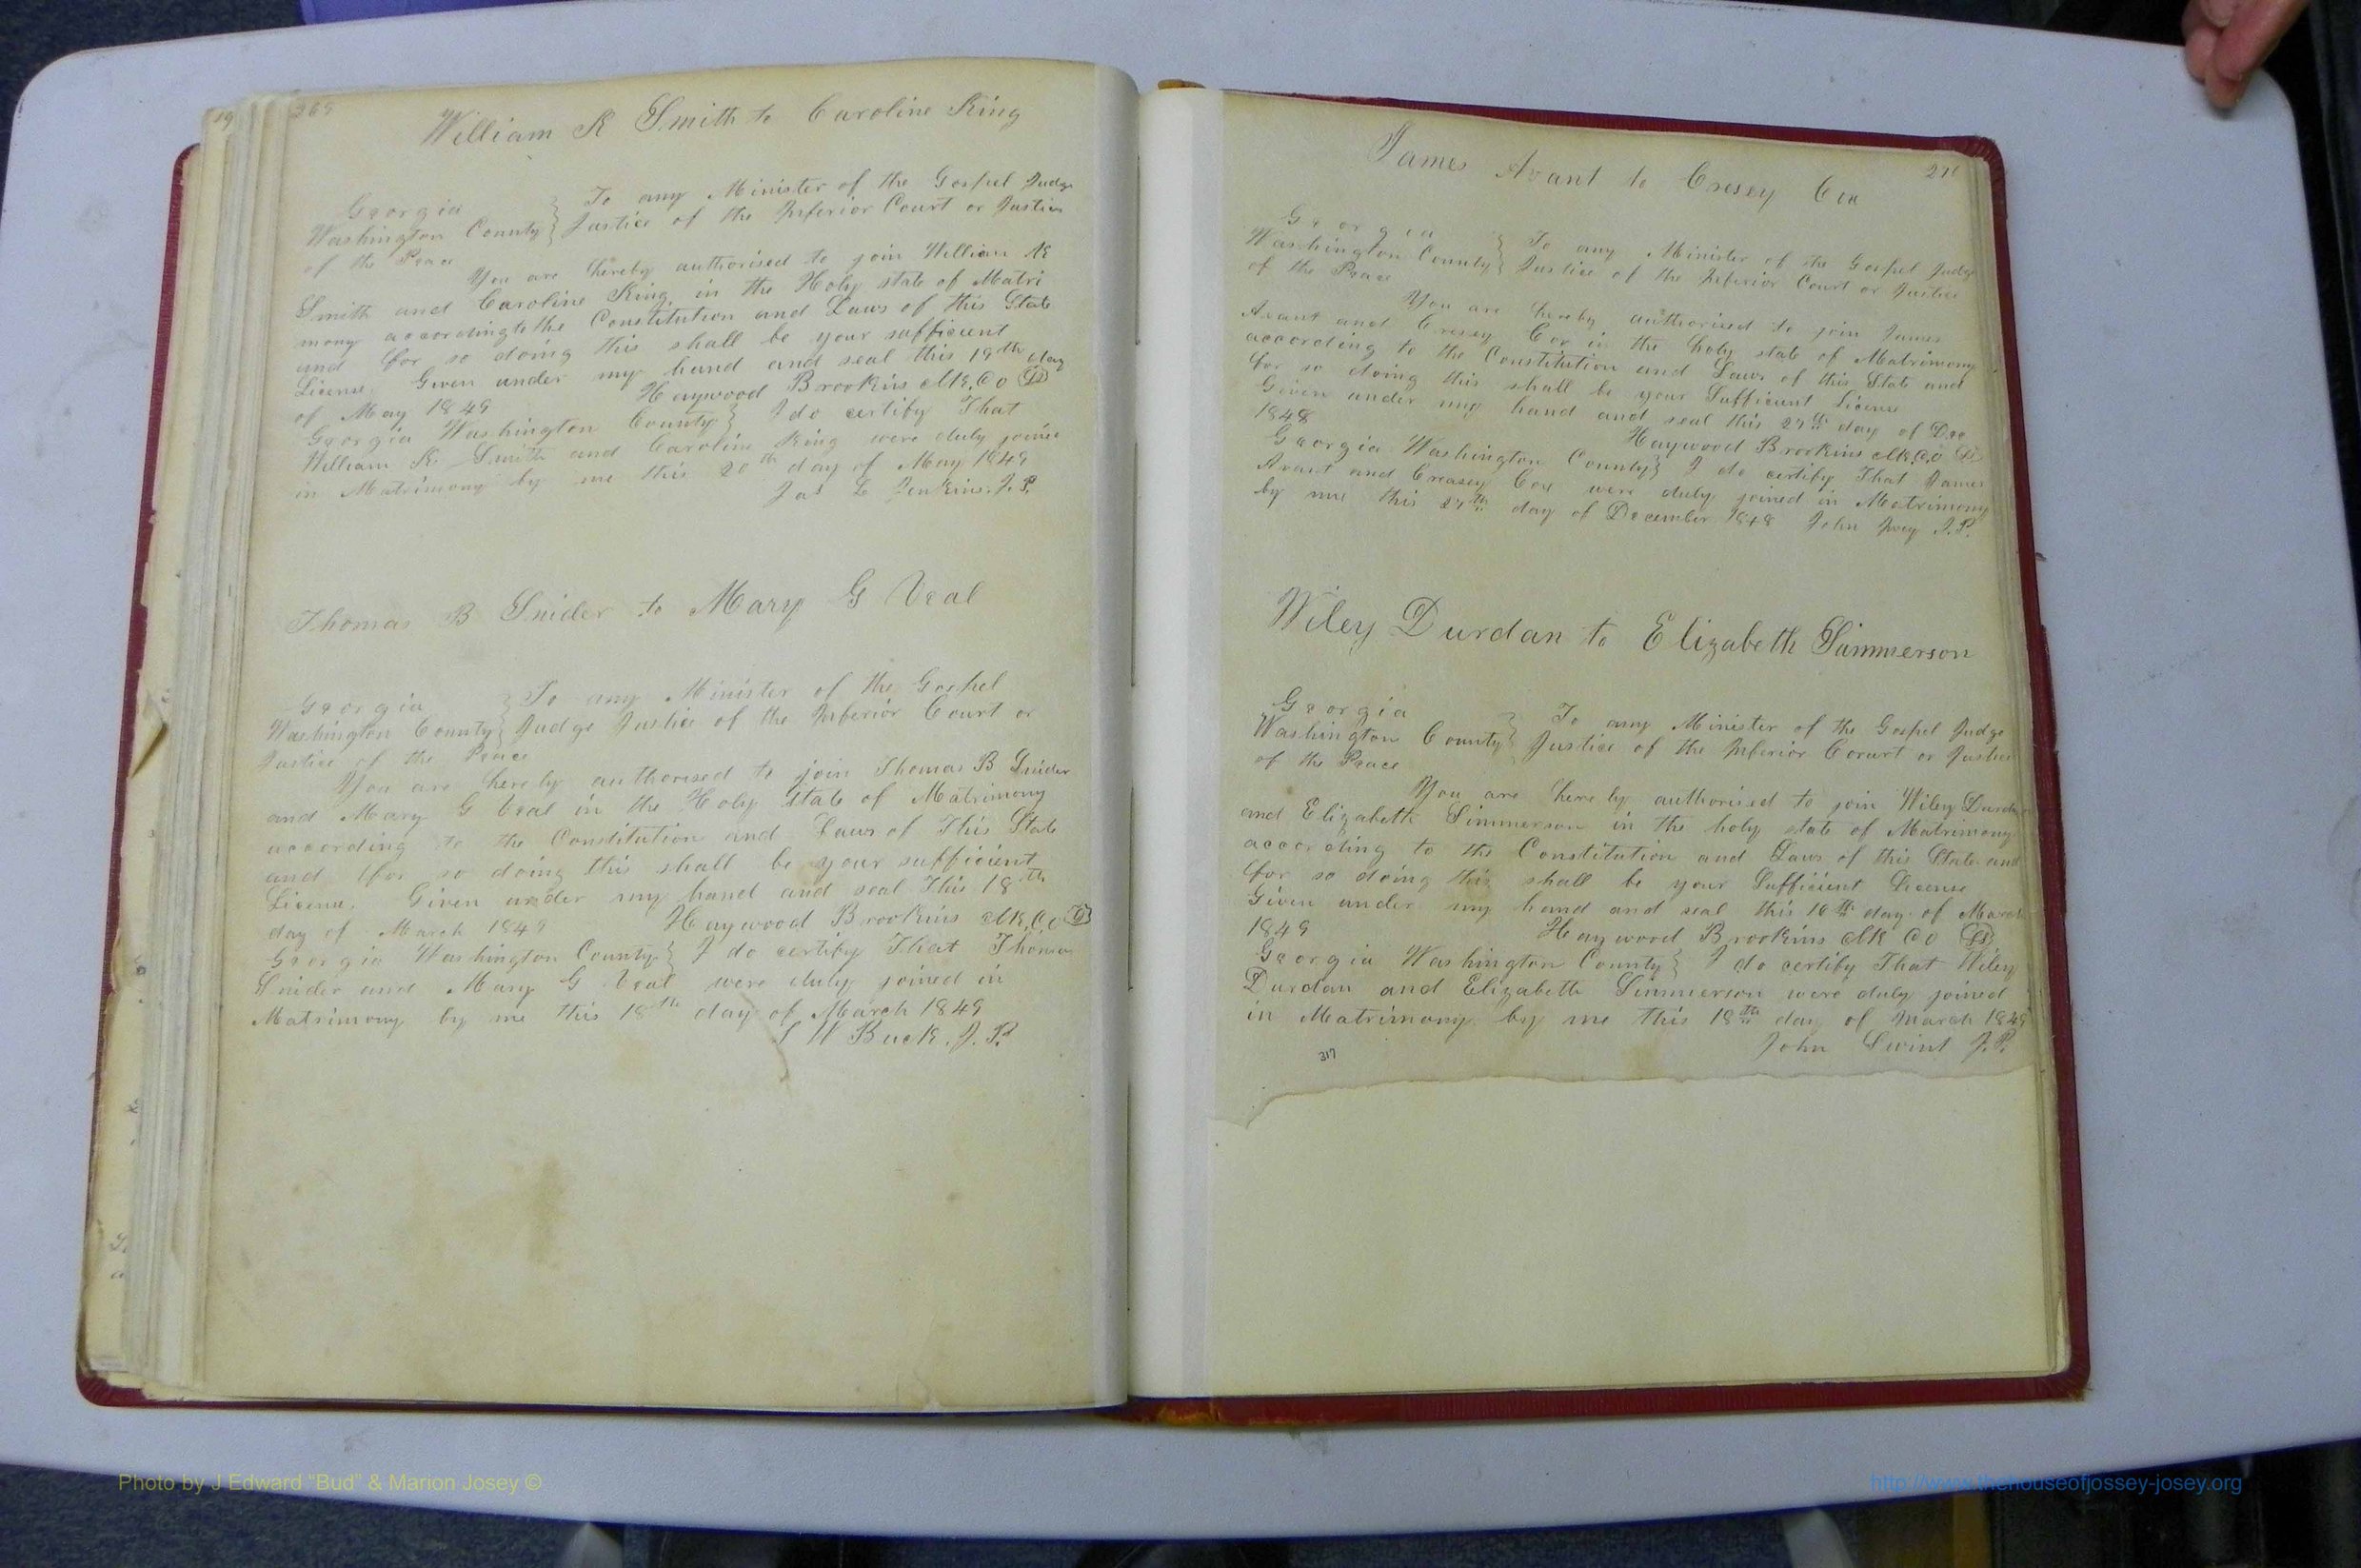 269
William R Smith to Caroline King
Georgia
Washington County } To any Minister of the Gospel Judge
Justice of the Inferior Court or Justice
of the Peace
You are hereby authorised to join William R
Smith and Caroline King in the Holy state of Matri
mony according to the Constitution and Laws of this State
and for so doing this shall be your sufficient
License. Given under my hand and seal this 19th day
of May 1849 Haywood Brookins Clk. C.O
Georgia Washington County } I do certify That
William R. Smith and Caroline King were duly joined
in Matrimony by me this 20th day of May 1849
Jas L Jenkins. J.P.
Thomas B Snider to Mary G Veal
Georgia
Washington County } To any Minister of the Gospel
Judge Justice of the Inferior Court or
Justice of the Peace
You are hereby authorised to join Thomas B Snider
and Mary G Veal in the Holy State of Matrimony
according to the Constitution and Laws of This State
and for so doing this shall be your sufficient
License. Given under my hand and seal This 18th
day of March 1849 Haywood Brookins Clk. C.O
Georgia Washington County } I do certify That Thomas
Snider and Mary G Veal were duly joined in
Matrimony by me this 18th day of March 1849
S W Buck. J.P.
James Avant to Cresey Cox
Georgia
Washington County } To any Minister of the Gospel Judge
Justice of the Inferior Court or Justice
of the Peace
You are hereby authorised to join James
Avant and Cresey Cox in the holy state of Matrimony
according to the Constitution and Laws of this State and
for so doing this shall be your Sufficient License
Given under my hand and seal this 27th day of Dec
1848 Haywood Brookins Clk. C.O
Georgia Washington County } I do certify That James
Avant and Creasey Cox were duly joined in Matrimony
by me this 27th day of December 1848 John Ivey J.P.
Wiley Durdan to Elizabeth Simmerson
Georgia
Washington County } To any Minister of the Gospel Judge
Justice of the Inferior Court or Justice
of the Peace
You are hereby authorised to join Wiley Durdan
and Elizabeth Simmerson in the holy state of Matrimony
according to the Constitution and Laws of this State and
for so doing this shall be your Sufficient License
Given under my hand and seal this 16th day of March
1849 Haywood Brookins Clk C O
Georgia Washington County } I do certify That Wiley
Durdan and Elizabeth Simmerson were duly joined
in Matrimony by me this 18th day of March 1849
John Swint J.P.
317
Photo by J Edward "Bud" & Marion Josey ©
http://www.thehouseofjossey-josey.org